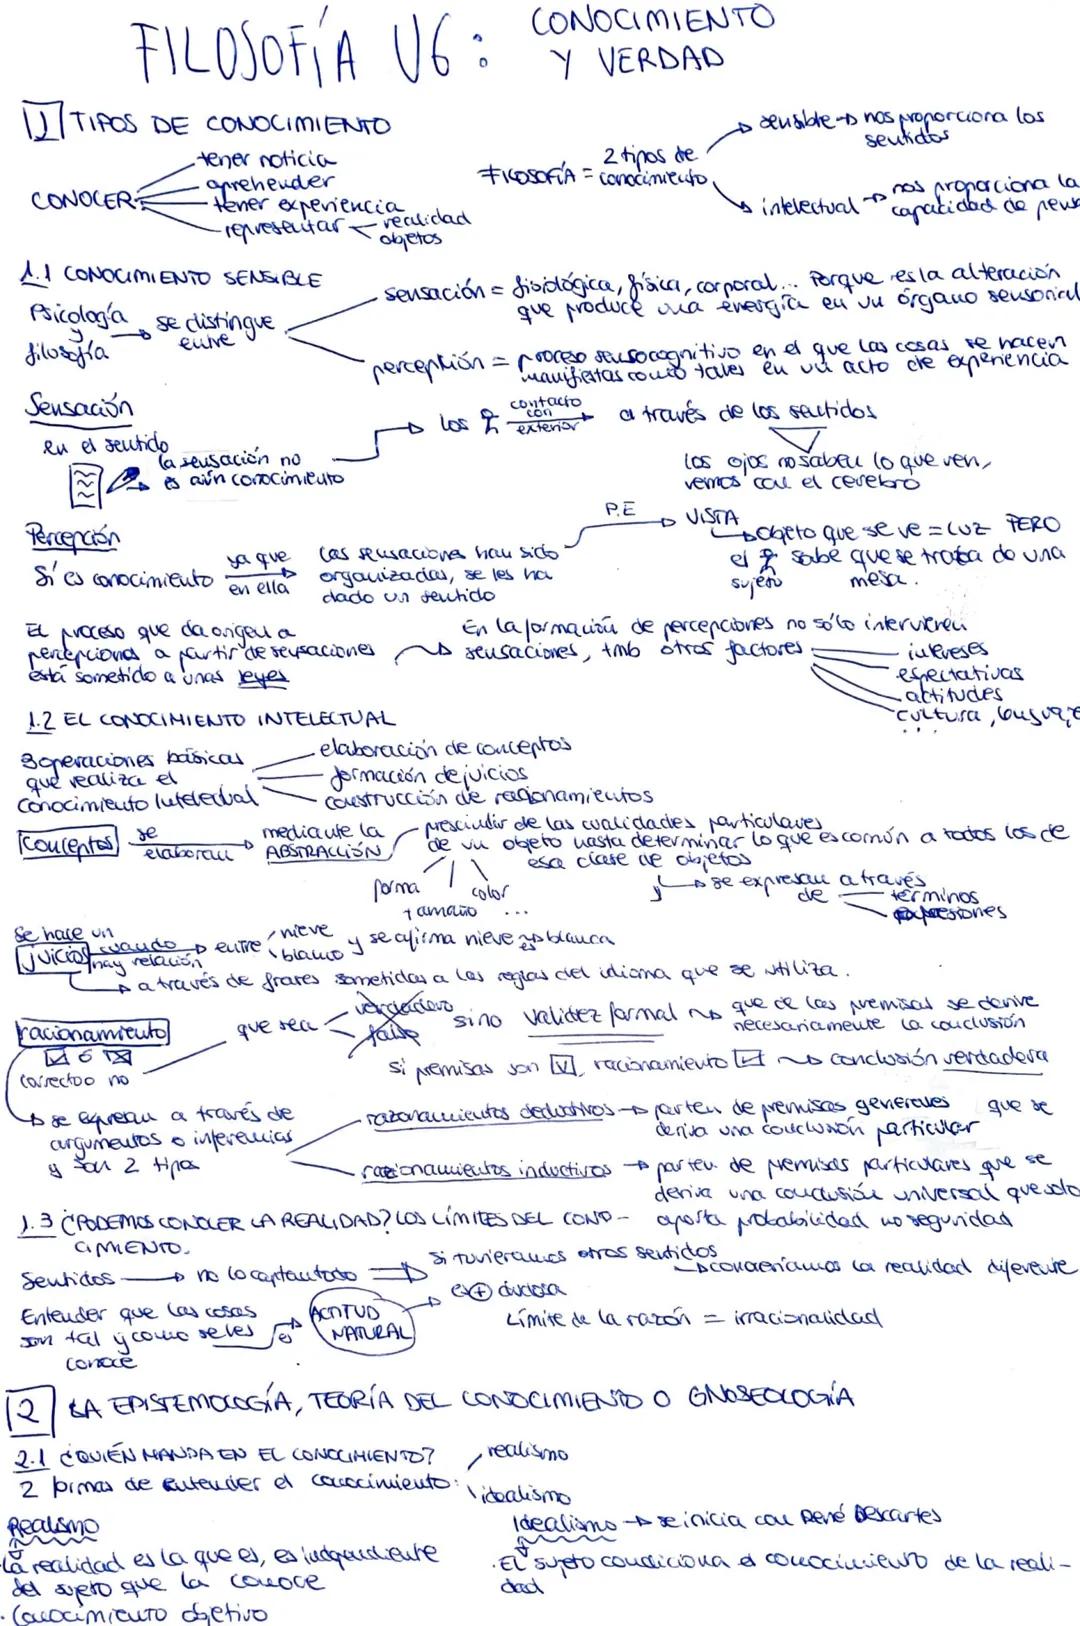 FILOSOFÍA U6: CONOCIMIENTO Y VERDAD
1 TIPOS DE CONOCIMIENTO
CONOCER
tener noticia
aprehender
tener experiencia
representar
realidad
objetos
FILOSOFÍA = 2 tipos de conocimiento
sensible → nos proporciona los sentidos
intelectual → nos proporciona la capacidad de pens
1.1 CONOCIMIENTO SENSIBLE
Psicología y filosofía → se distingue entre
sensación = fisiológica, física, corporal... Porque es la alteración
que produce una energía en un órgano sensorial
percepción = proceso sensocognitivo en el que las cosas se hacen
manifiestas como tales en un acto de experiencia
Sensación
en el sentido
la sensación no
es aún conocimiento
los contacto con exterior → a través de los sentidos
los ojos no saben lo que ven,
vemos con el cerebro
Percepción
Sí es conocimiento ya que en ella →
las sensaciones han sido
organizadas, se les ha
dado un sentido
P.E → VISTA
objeto que se ve = luz PERO
el sujeto sabe que se trata de una
mesa.
El proceso que da origen a
percepciones a partir de sensaciones
está sometido a unas leyes
En la formación de percepciones no sólo intervienen
sensaciones, tmb otros factores
intereses
expectativas
actitudes
cultura, lenguaje
...
1.2 EL CONOCIMIENTO INTELECTUAL
3 operaciones básicas
que realiza el
conocimiento intelectual
elaboración de conceptos
formación de juicios
construcción de razionamientos
Conceptos se elaboran → mediante la ABSTRACCIÓN
prescindir de las cualidades particulares
de un objeto hasta determinar lo que es común a todos los de
esa clase de objetos
forma
tamaño
color
...
y → se expresan a través de
términos
expresiones
se hace un
juicios cuando hay relación → entre nieve blanco y se afirma nieve es blanca
→ a través de frases sometidas a las reglas del idioma que se utiliza.
racionamiento
correcto o no
que sea verdadero falso sino validez formal
que de las premisas se derive
necesariamente la conclusión
si premisas son V, racionamiento → conclusión verdadera
→ se expresan a través de
argumentos o inferencias
y son 2 tipos
razonamientos deductivos → parten de premisas generales que se
deriva una conclusión particular
razionamientos inductivos → parten de premisas particulares que se
deriva una conclusión universal que solo
aporta probabilidad no seguridad
1.3 ¿PODEMOS CONOCER LA REALIDAD? LOS LÍMITES DEL CONO-
CIMIENTO.
Sentidos → no lo captan todo ⇒ Si tuvieramos otros sentidos
→ conoceríamos la realidad diferente
Entender que las cosas
son tal y como se les
conoce
es → ACTITUD NATURAL → es + dudosa
Límite de la razón = irracionalidad
2 LA EPISTEMOLOGÍA, TEORÍA DEL CONOCIMIENTO O GNOSEOLOGÍA
2.1 ¿QUIÉN MANDA EN EL CONOCIMIENTO?
2 formas de entender el conocimiento:
realismo
idealismo
Realismo
· La realidad es la que es, es independiente
del sujeto que la conoce
· Conocimiento objetivo
Idealismo → se inicia con René Descartes
· El sujeto condiciona el conocimiento de la reali-
dad